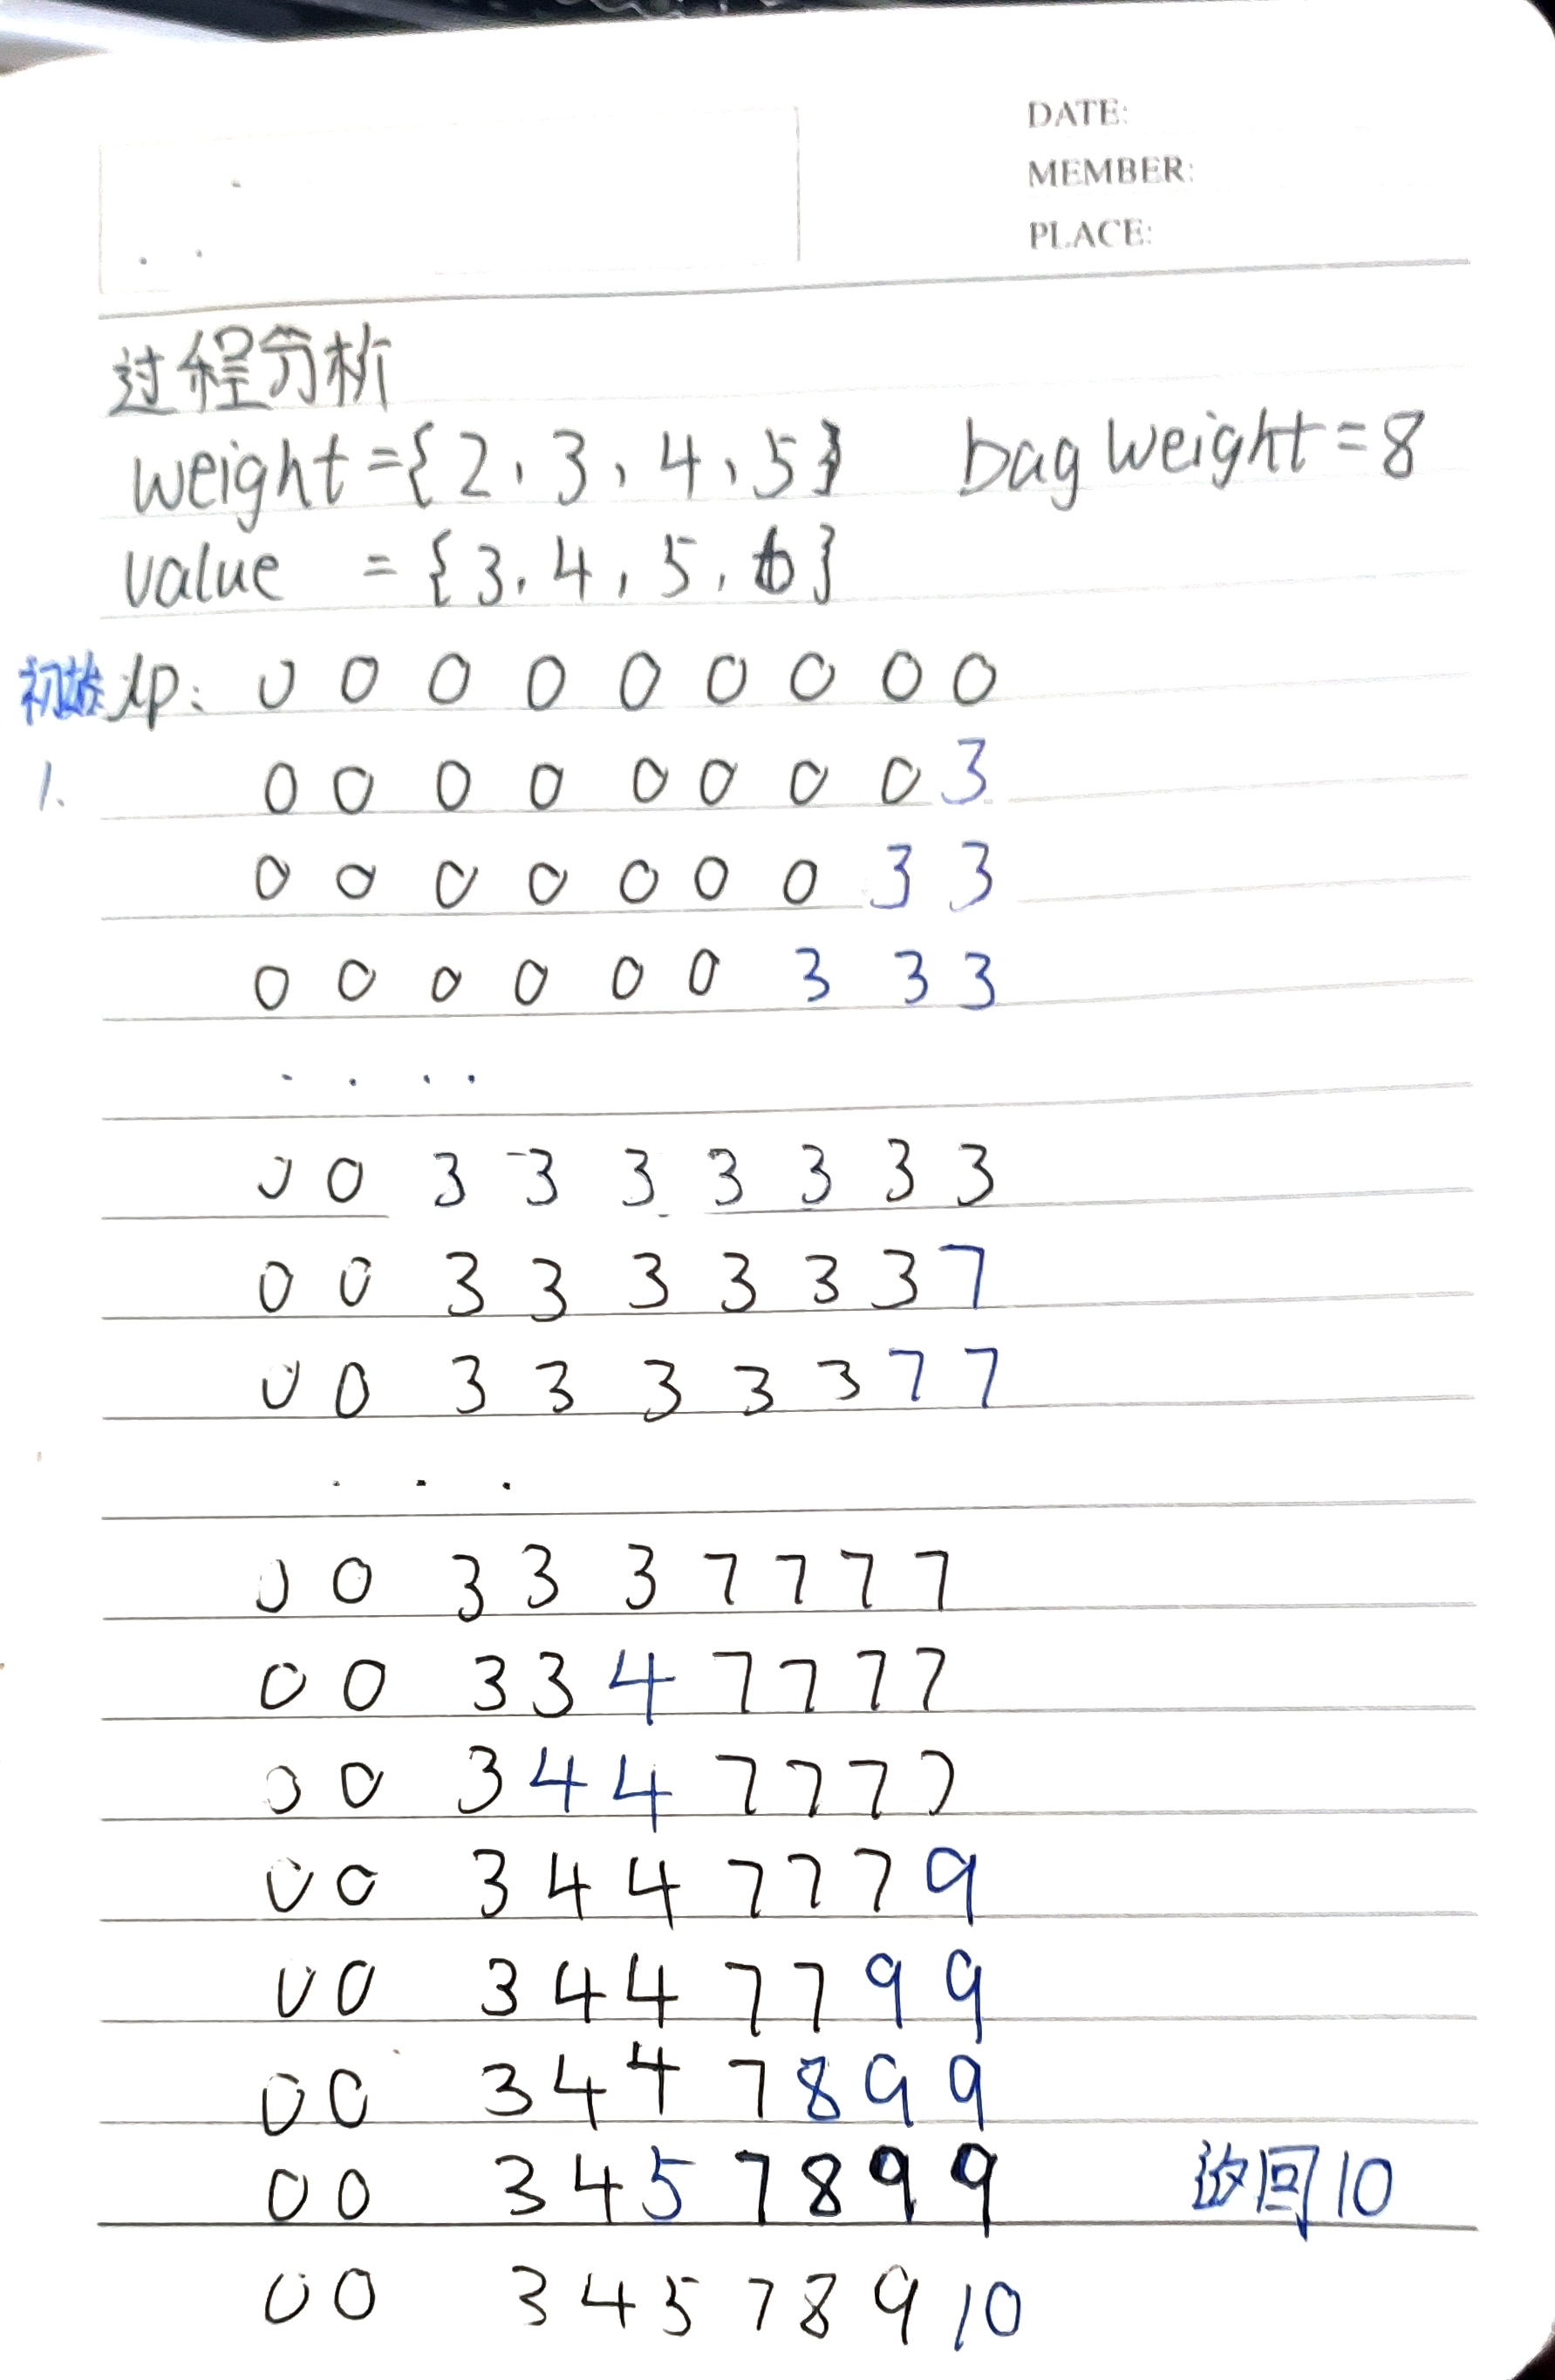 DATE:
MEMBER:
PLACE:
过程分析
weight={2,3,4,5} bag weight=8
value = {3,4,5,6}
初始dp: 0 0 0 0 0 0 0 0 0
1. 0 0 0 0 0 0 0 0 3
0 0 0 0 0 0 0 3 3
0 0 0 0 0 0 3 3 3
. . . .
0 0 3 3 3 3 3 3 3
0 0 3 3 3 3 3 3 7
0 0 3 3 3 3 3 7 7
. . .
0 0 3 3 3 7 7 7 7
0 0 3 3 4 7 7 7 7
0 0 3 4 4 7 7 7 7
0 0 3 4 4 7 7 7 9
0 0 3 4 4 7 7 9 9
0 0 3 4 4 7 8 9 9
0 0 3 4 5 7 8 9 9 返回10
0 0 3 4 5 7 8 9 10